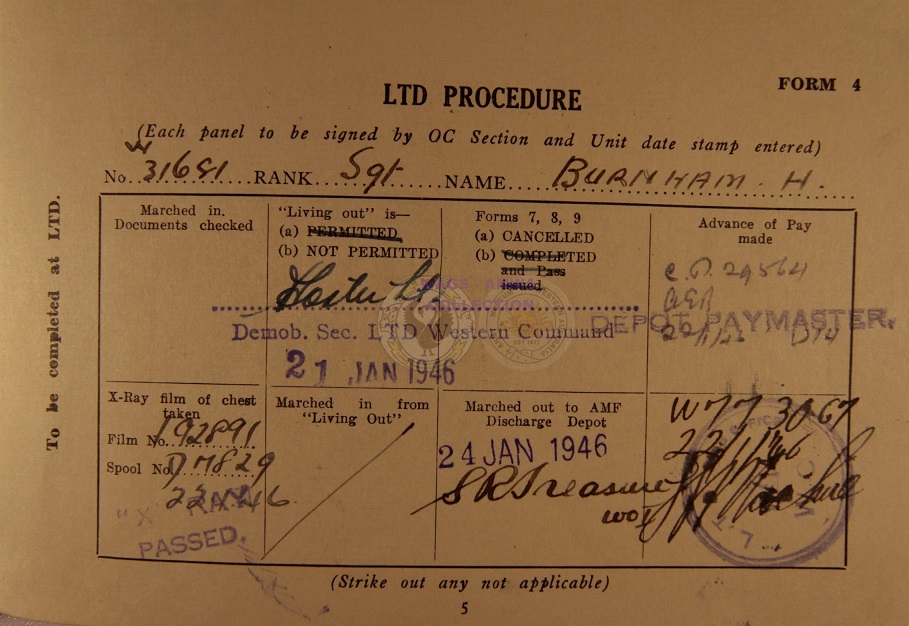 FORM 4
LTD PROCEDURE
(Each panel to be signed by OC Section and Unit date stamp entered)
W
No. 31681 RANK Sgt NAME BURNHAM. H.
To be completed at LTD.
Marched in.
Documents checked
"Living out" is—
(a) PERMITTED
(b) NOT PERMITTED
Forms 7, 8, 9
(a) CANCELLED
(b) COMPLETED
and Pass
issued
Advance of Pay
made
Lt.
COLLECTION
Demob. Sec. LTD Western Command
21 JAN 1946
DEPOT PAYMASTER.
X-Ray film of chest
taken
Film No. 192891
Spool No. D7829
22.1.46
"X" RAY
PASSED.
Marched in from
"Living Out"
Marched out to AMF
Discharge Depot
24 JAN 1946
S R Treasure
22/1/46
(Strike out any not applicable)
5